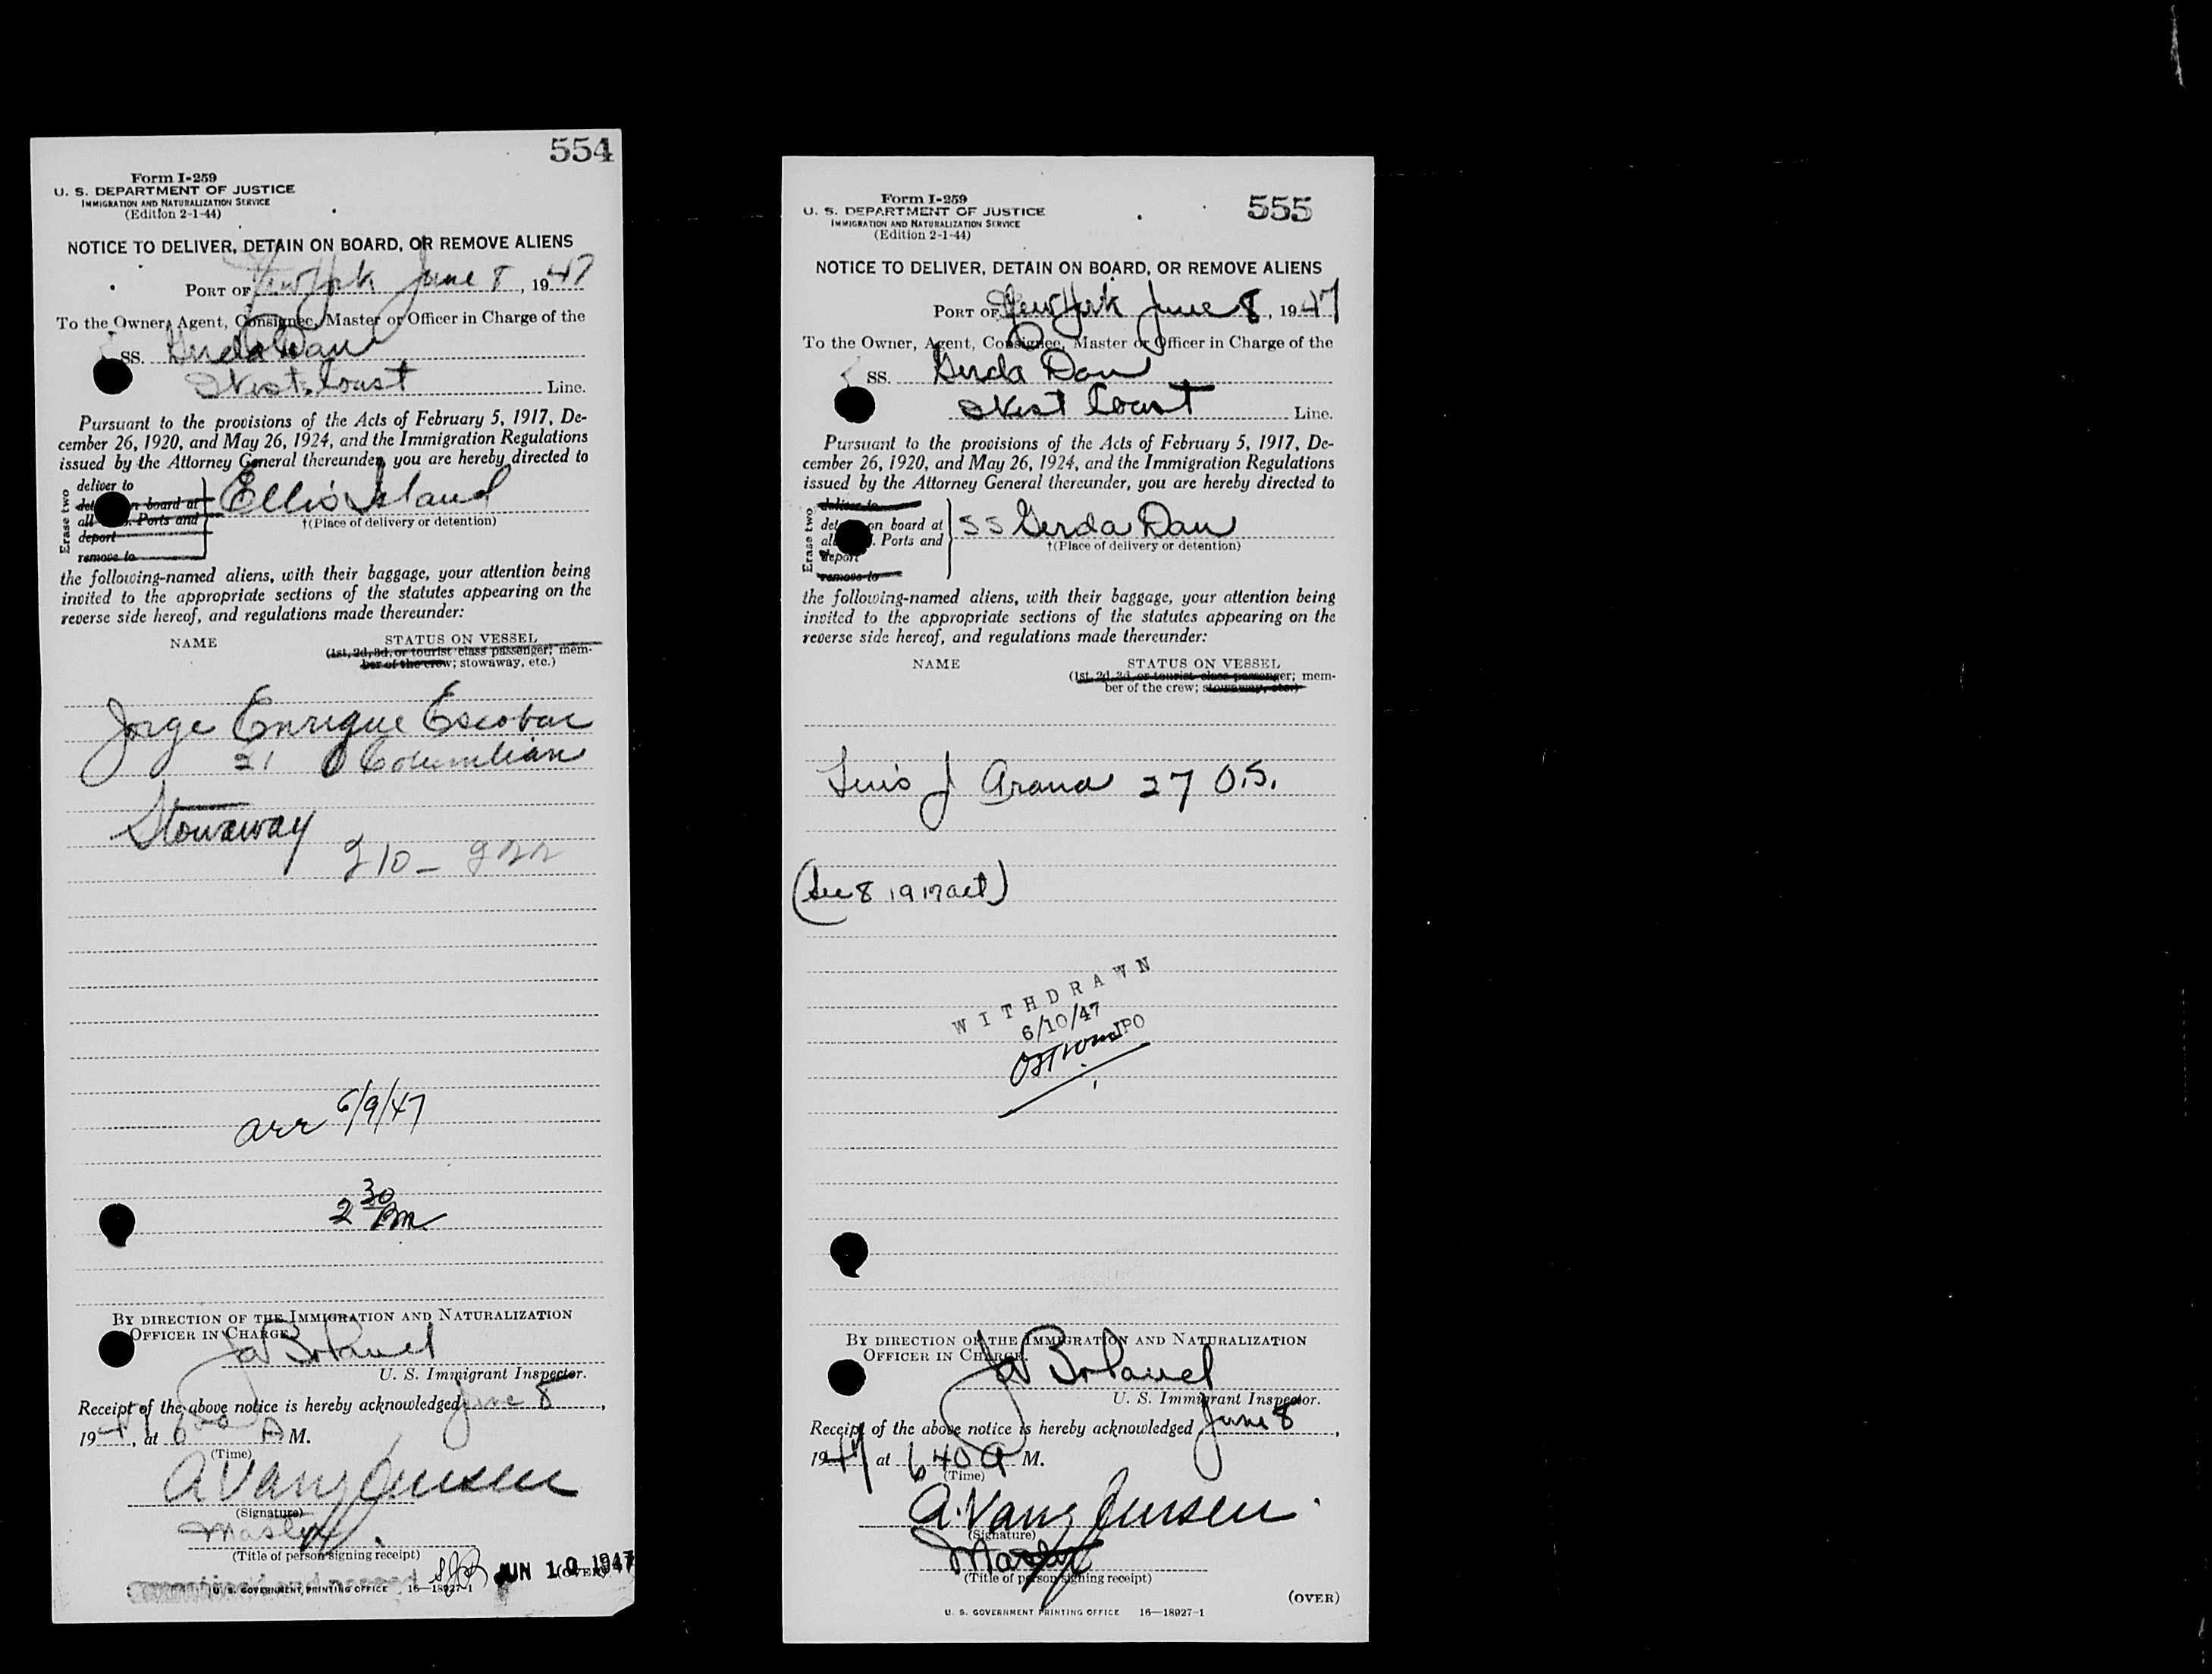 554
Form I-259
U. S. DEPARTMENT OF JUSTICE
IMMIGRATION AND NATURALIZATION SERVICE
(Edition 2-1-44)
NOTICE TO DELIVER, DETAIN ON BOARD, OR REMOVE ALIENS
PORT OF New York June 8, 1947
To the Owner, Agent, Consignee, Master or Officer in Charge of the
SS. Gerda Dan
West Coast Line.
Pursuant to the provisions of the Acts of February 5, 1917, De-
cember 26, 1920, and May 26, 1924, and the Immigration Regulations
issued by the Attorney General thereunder, you are hereby directed to
Erase two
deliver to
on board at
all Ports and
deport
remove to
Ellis Island
†(Place of delivery or detention)
the following-named aliens, with their baggage, your attention being
invited to the appropriate sections of the statutes appearing on the
reverse side hereof, and regulations made thereunder:
NAME STATUS ON VESSEL
(1st, 2d, 3d, or tourist class passenger; mem-
ber of the crew; stowaway, etc.)
Jorge Enrique Escobar
21 Columbian
Stowaway
arr 6/9/47
2 30 Pm
BY DIRECTION OF THE IMMIGRATION AND NATURALIZATION
OFFICER IN CHARGE
U. S. Immigrant Inspector.
Receipt of the above notice is hereby acknowledged June 8,
1947, at 6 A M.
(Time)
A Vang Jensen
(Signature)
Master
(Title of person signing receipt)
JUN 10 1947
(OVER)
U. S. GOVERNMENT PRINTING OFFICE 16—18927-1
555
Form I-259
U. S. DEPARTMENT OF JUSTICE
IMMIGRATION AND NATURALIZATION SERVICE
(Edition 2-1-44)
NOTICE TO DELIVER, DETAIN ON BOARD, OR REMOVE ALIENS
PORT OF New York June 8, 1947
To the Owner, Agent, Consignee, Master or Officer in Charge of the
SS. Gerda Dan
West Coast Line.
Pursuant to the provisions of the Acts of February 5, 1917, De-
cember 26, 1920, and May 26, 1924, and the Immigration Regulations
issued by the Attorney General thereunder, you are hereby directed to
Erase two
deliver to
on board at
Ports and
deport
remove to
SS Gerda Dan
†(Place of delivery or detention)
the following-named aliens, with their baggage, your attention being
invited to the appropriate sections of the statutes appearing on the
reverse side hereof, and regulations made thereunder:
NAME STATUS ON VESSEL
(1st, 2d, 3d, or tourist class passenger; mem-
ber of the crew; stowaway, etc.)
Luis J Arana 27 O.S.
(Sec 8 1917 act)
WITHDRAWN
6/10/47
BY DIRECTION OF THE IMMIGRATION AND NATURALIZATION
OFFICER IN CHARGE.
U. S. Immigrant Inspector.
Receipt of the above notice is hereby acknowledged June 8,
1947 at 6 40 A M.
(Time)
A. Vang Jensen
(Signature)
Master
(Title of person signing receipt)
(OVER)
U. S. GOVERNMENT PRINTING OFFICE 16—18927-1